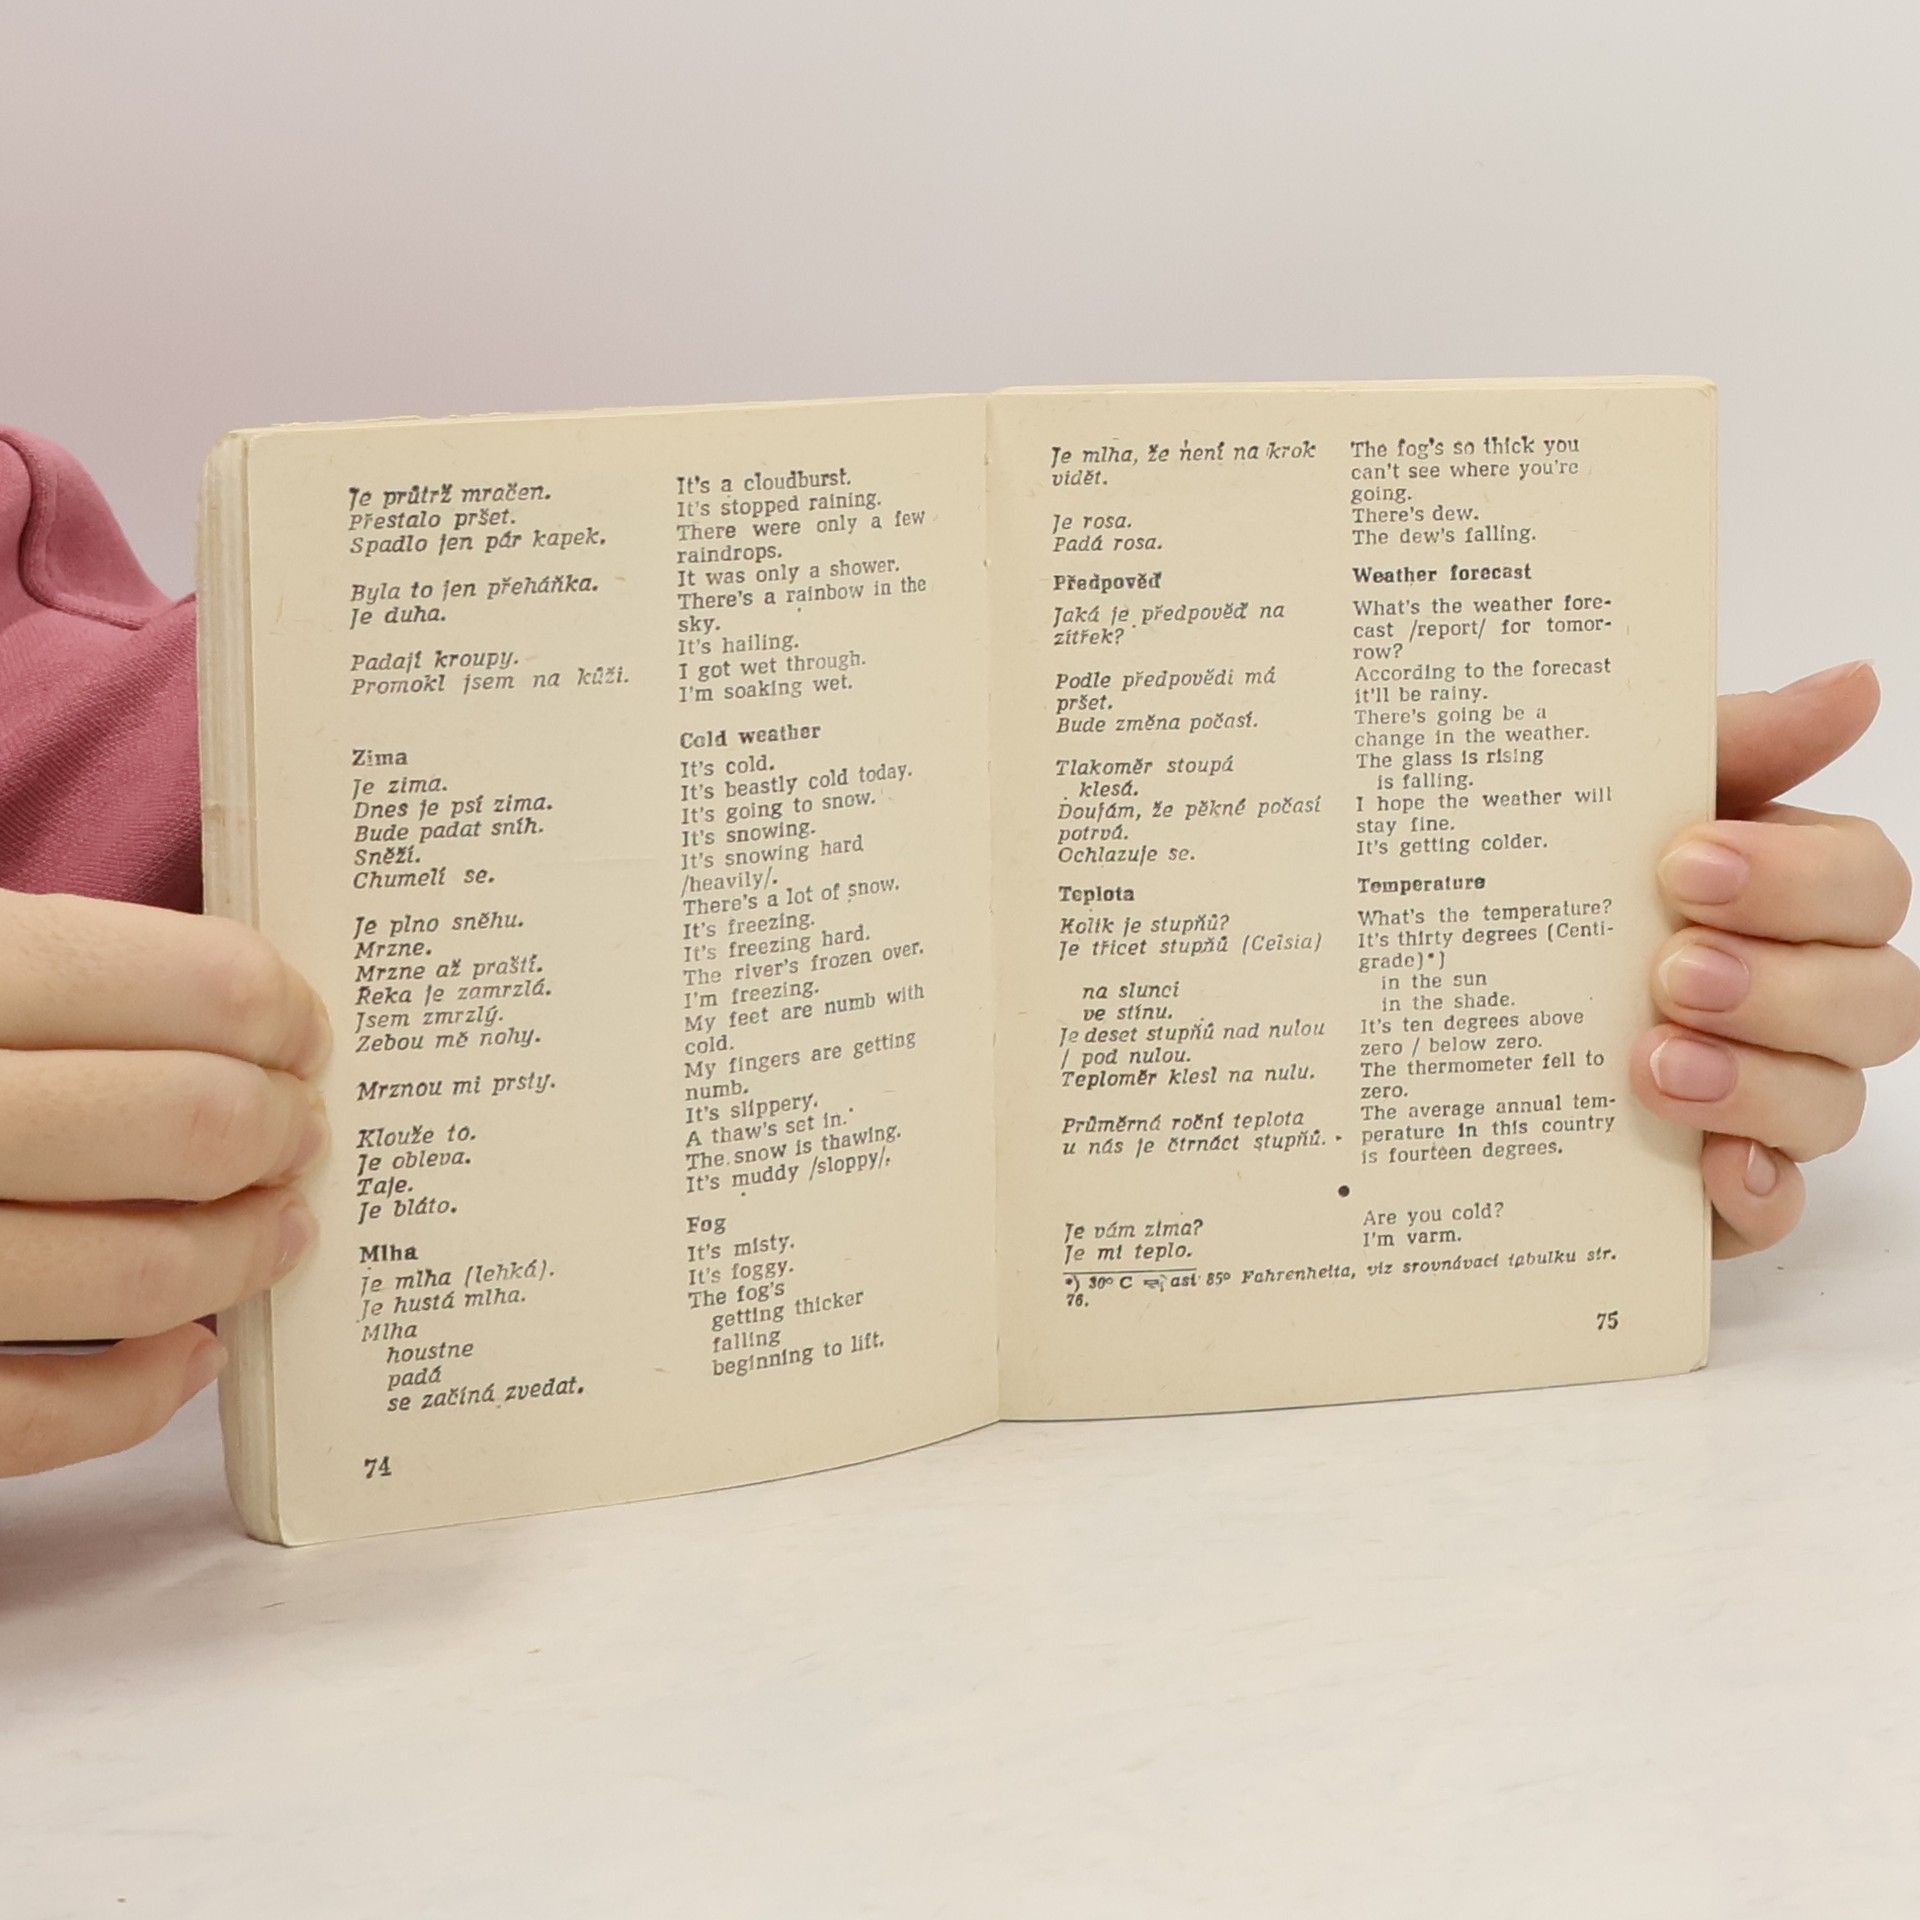 Je průtrž mračen.
Přestalo pršet.
Spadlo jen pár kapek.
Byla to jen přeháňka.
Je duha.
Padají kroupy.
Promokl jsem na kůži.
Zima
Je zima.
Dnes je psí zima.
Bude padat sníh.
Sněží.
Chumelí se.
Je plno sněhu.
Mrzne.
Mrzne až praští.
Řeka je zamrzlá.
Jsem zmrzlý.
Zebou mě nohy.
Mrznou mi prsty.
Klouže to.
Je obleva.
Taje.
Je bláto.
Mlha
Je mlha (lehká).
Je hustá mlha.
Mlha
houstne
padá
se začíná zvedat.
74
It's a cloudburst.
It's stopped raining.
There were only a few
raindrops.
It was only a shower.
There's a rainbow in the
sky.
It's hailing.
I got wet through.
I'm soaking wet.
Cold weather
It's cold.
It's beastly cold today.
It's going to snow.
It's snowing.
It's snowing hard
/heavily/.
There's a lot of snow.
It's freezing.
It's freezing hard.
The river's frozen over.
I'm freezing.
My feet are numb with
cold.
My fingers are getting
numb.
It's slippery.
A thaw's set in.
The snow is thawing.
It's muddy /sloppy/.
Fog
It's misty.
It's foggy.
The fog's
getting thicker
falling
beginning to lift.
Je mlha, že není na krok
vidět.
Je rosa.
Padá rosa.
Předpověď
Jaká je předpověď na
zítřek?
Podle předpovědi má
pršet.
Bude změna počasí.
Tlakoměr stoupá
klesá.
Doufám, že pěkné počasí
potrvá.
Ochlazuje se.
Teplota
Kolik je stupňů?
Je třicet stupňů (Celsia)
na slunci
ve stínu.
Je deset stupňů nad nulou
/ pod nulou.
Teploměr klesl na nulu.
Průměrná roční teplota
u nás je čtrnáct stupňů.
Je vám zima?
Je mi teplo.
The fog's so thick you
can't see where you're
going.
There's dew.
The dew's falling.
Weather forecast
What's the weather fore-
cast /report/ for tomor-
row?
According to the forecast
it'll be rainy.
There's going be a
change in the weather.
The glass is rising
is falling.
I hope the weather will
stay fine.
It's getting colder.
Temperature
What's the temperature?
It's thirty degrees (Centi-
grade)*)
in the sun
in the shade.
It's ten degrees above
zero / below zero.
The thermometer fell to
zero.
The average annual tem-
perature in this country
is fourteen degrees.
Are you cold?
I'm varm.
*) 30° C = asi 85° Fahrenheita, viz srovnávací tabulku str.
76.
75